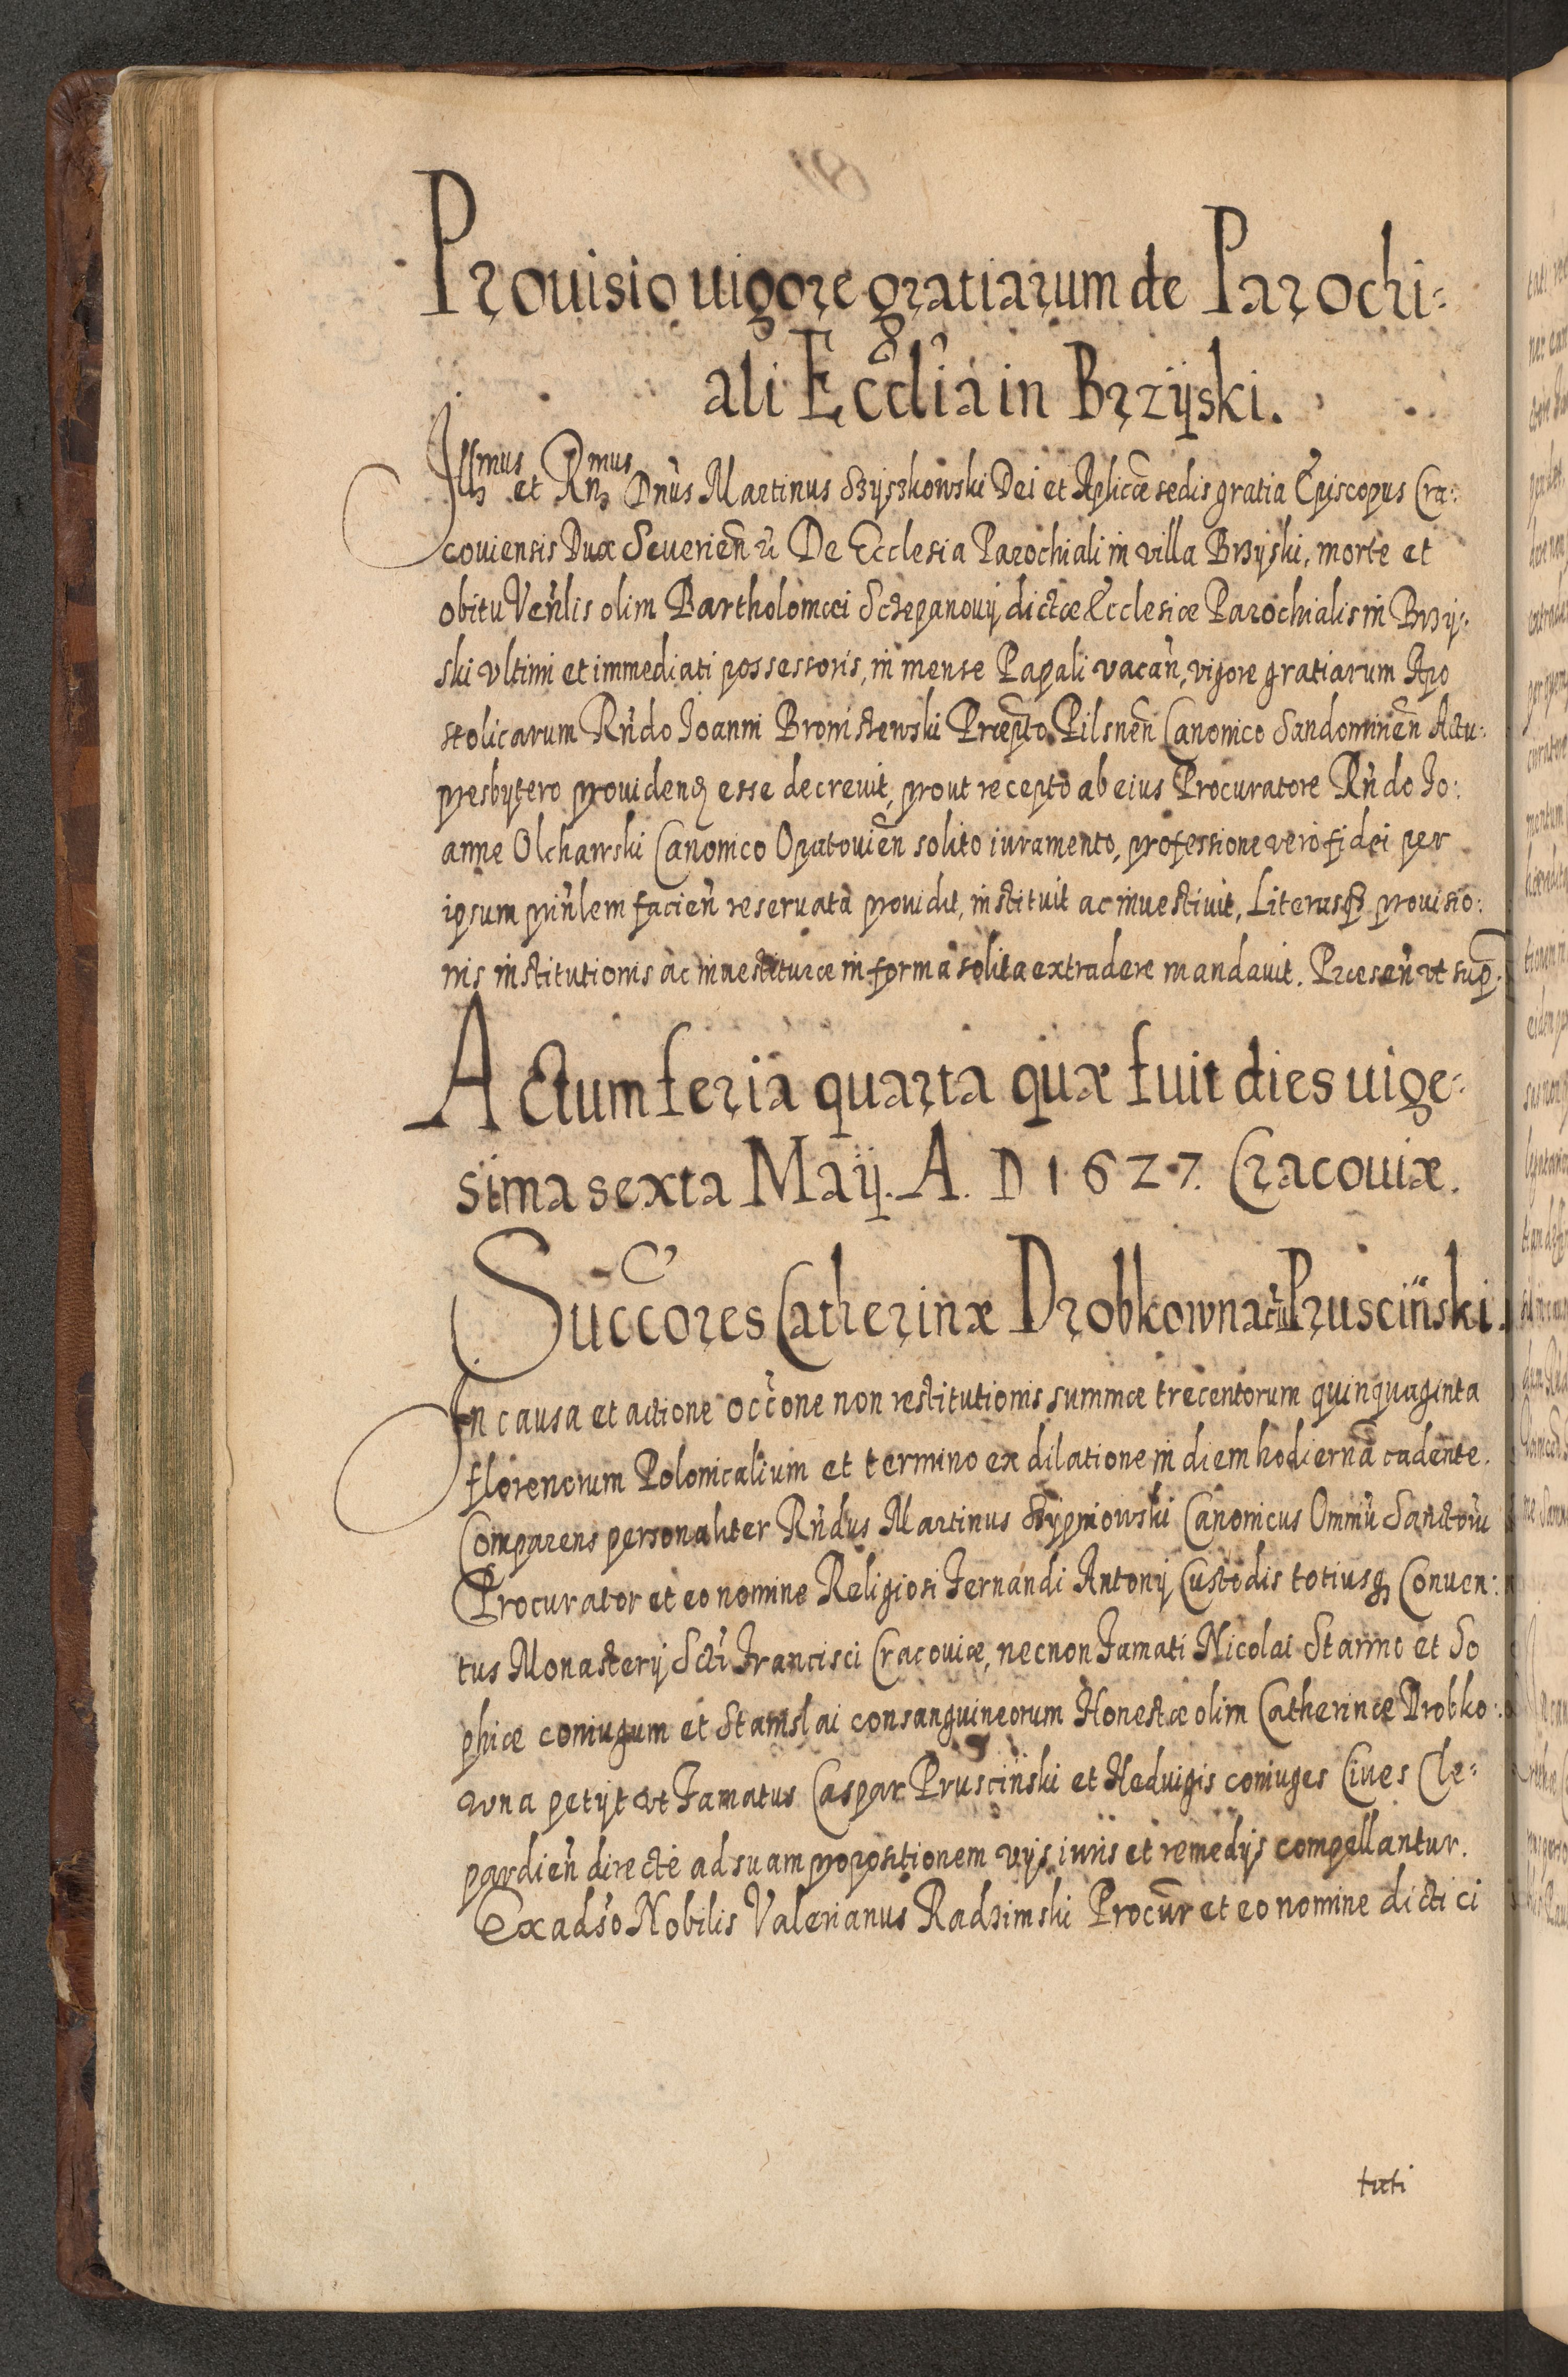 Prouisio uigore gratiarum de Parochi:
ali Eccl̃ia in Brzÿski.
Illmus et Rn̄dmus Dn̄us Martinus Szÿszkowski Dei et Aplicæ sedis gratia Episcopus Cra:
couiensis Dux Seuerien̄ &c De Ecclesia Parochiali in villa Brzÿski, morte et
obitu Ven̄lis olim Bartholomæi Sczepanouij dictæ Ecclesiæ Parochialis in Brzÿ:
ski vltimi et immediati possessoris, in mense Papali vacan̄, vigore gratiarum Apo
stolicarum Rn̄do Joanni Broniszewski Præpto Pilsnen̄ Canonico Sandomirien̄ Actu:
presbytero prouidend esse decreuit, prout recepto ab eius Procuratore Rn̄do Jo:
anne Olcharski Canonico Opatouien̄ solito iuramento, professione vero fidei per
ipsum prin̄lem facien̄ reseruata prouidit, instituit ac inuestiuit, Literasq prouisio:
nis institutionis ac inuestituræ in forma solita extradere mandauit. Præsen̄ vt sup̄.
Actum feria quarta quæ fuit dies uige:
sima sexta Maij. A. D 1627. Cracouiæ.
Succores Catherinæ Drobkowna cū Prusciński.
In causa et actione occōne non restitutionis summæ trecentorum quinquaginta
florenorum Polonicalium et termino ex dilatione in diem hodiernā cadente.
Comparens personaliter Rn̄dus Martinus Szypniowski Canonicus Omniū Sanctorū
Procurator et eo nomine Religiosi Fernandi Antonij Custodis totiusq Conuen:
tus Monasterij Scti Francisci Cracouiæ, necnon Famati Nicolai Starmo et So
phiæ coniugum et Stanislai consanguineorum Honestæ olim Catherinæ Drobko:
wna petijt vt Famatus Caspar Prusciński et Heduigis coniuges Ciues Cle:
pardien̄ directè ad suam propositionem vijs iuris et remedijs compellantur.
Ex adso Nobilis Valerianus Radzimski Procur̄ et eo nomine dicti ci
tati